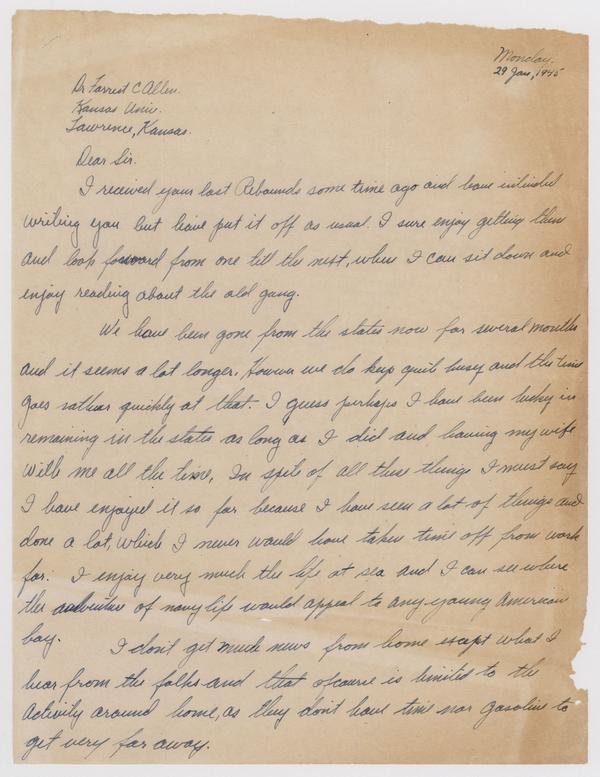 Monday.
29 Jan, 1945
Dr Forrest C Allen.
Kansas Univ.
Lawrence, Kansas.
Dear Sir.
I received your last Rebounds some time ago and have intended
writing you but have put it off as usual. I sure enjoy getting them
and look forward from one till the next, when I can sit down and
enjoy reading about the old gang.
We have been gone from the states now for several months
and it seems a lot longer. However we do keep quite busy and the time
goes rather quickly at that. I guess perhaps I have been lucky in
remaining in the states as long as I did and having my wife
with me all the time. In spite of all these things I must say
I have enjoyed it so far because I have seen a lot of things and
done a lot, which I never would have taken time off from work
for. I enjoy very much the life at sea and I can see where
the adventure of navy life would appeal to any young American
boy.
I don't get much news from home except what I
hear from the folks and that ofcourse is limited to the
activity around home, as they don't have time nor gasoline to
get very far away.